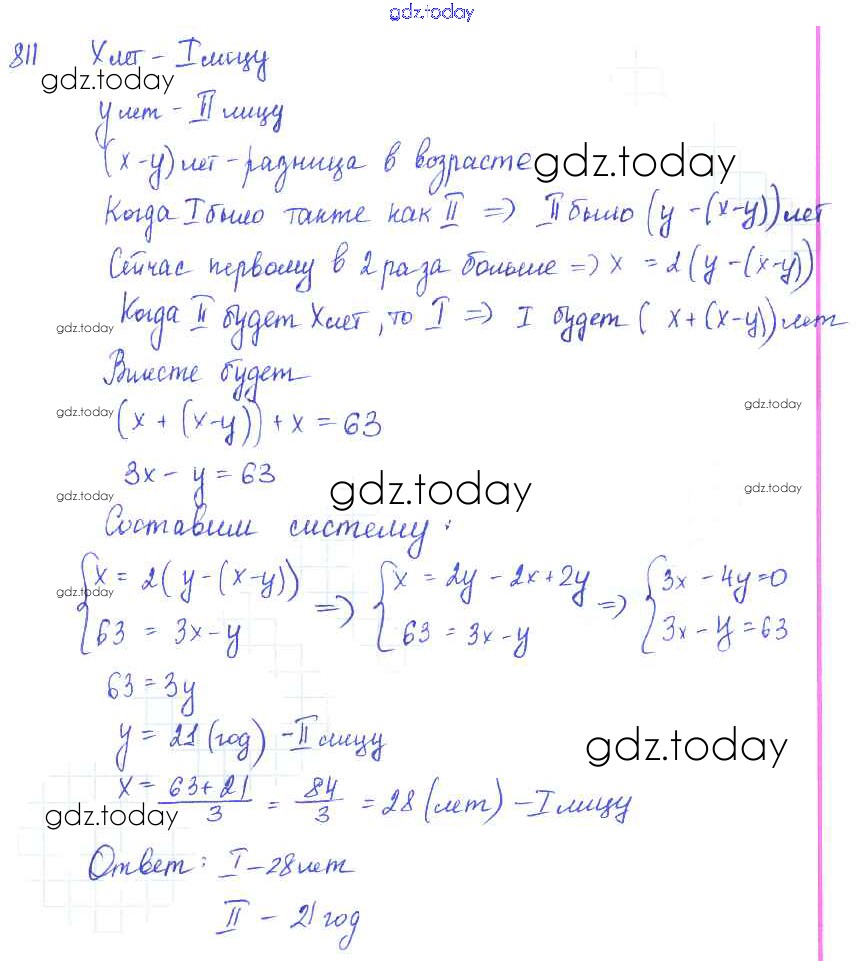 gdz.today
811 X лет – I лицу
gdz.today
y лет – II лицу
(x-y) лет – разница в возрасте gdz.today
Когда I было также как II => II было (y-(x-y)) лет
Сейчас первому в 2 раза больше => x = 2(y-(x-y))
gdz.today Когда II будет X лет, то I => I будет ( x+(x-y)) лет
Вместе будет
gdz.today (x + (x-y)) + x = 63 gdz.today
3x - y = 63
gdz.today gdz.today gdz.today
Составим систему:
gdz.today { x = 2(y-(x-y)) => { x = 2y - 2x + 2y => { 3x - 4y = 0
63 = 3x - y 63 = 3x - y 3x - y = 63
63 = 3y
y = 21 (год) - II лицу gdz.today
gdz.today x = 63+21/3 = 84/3 = 28 (лет) – I лицу
Ответ: I – 28 лет
II – 21 год